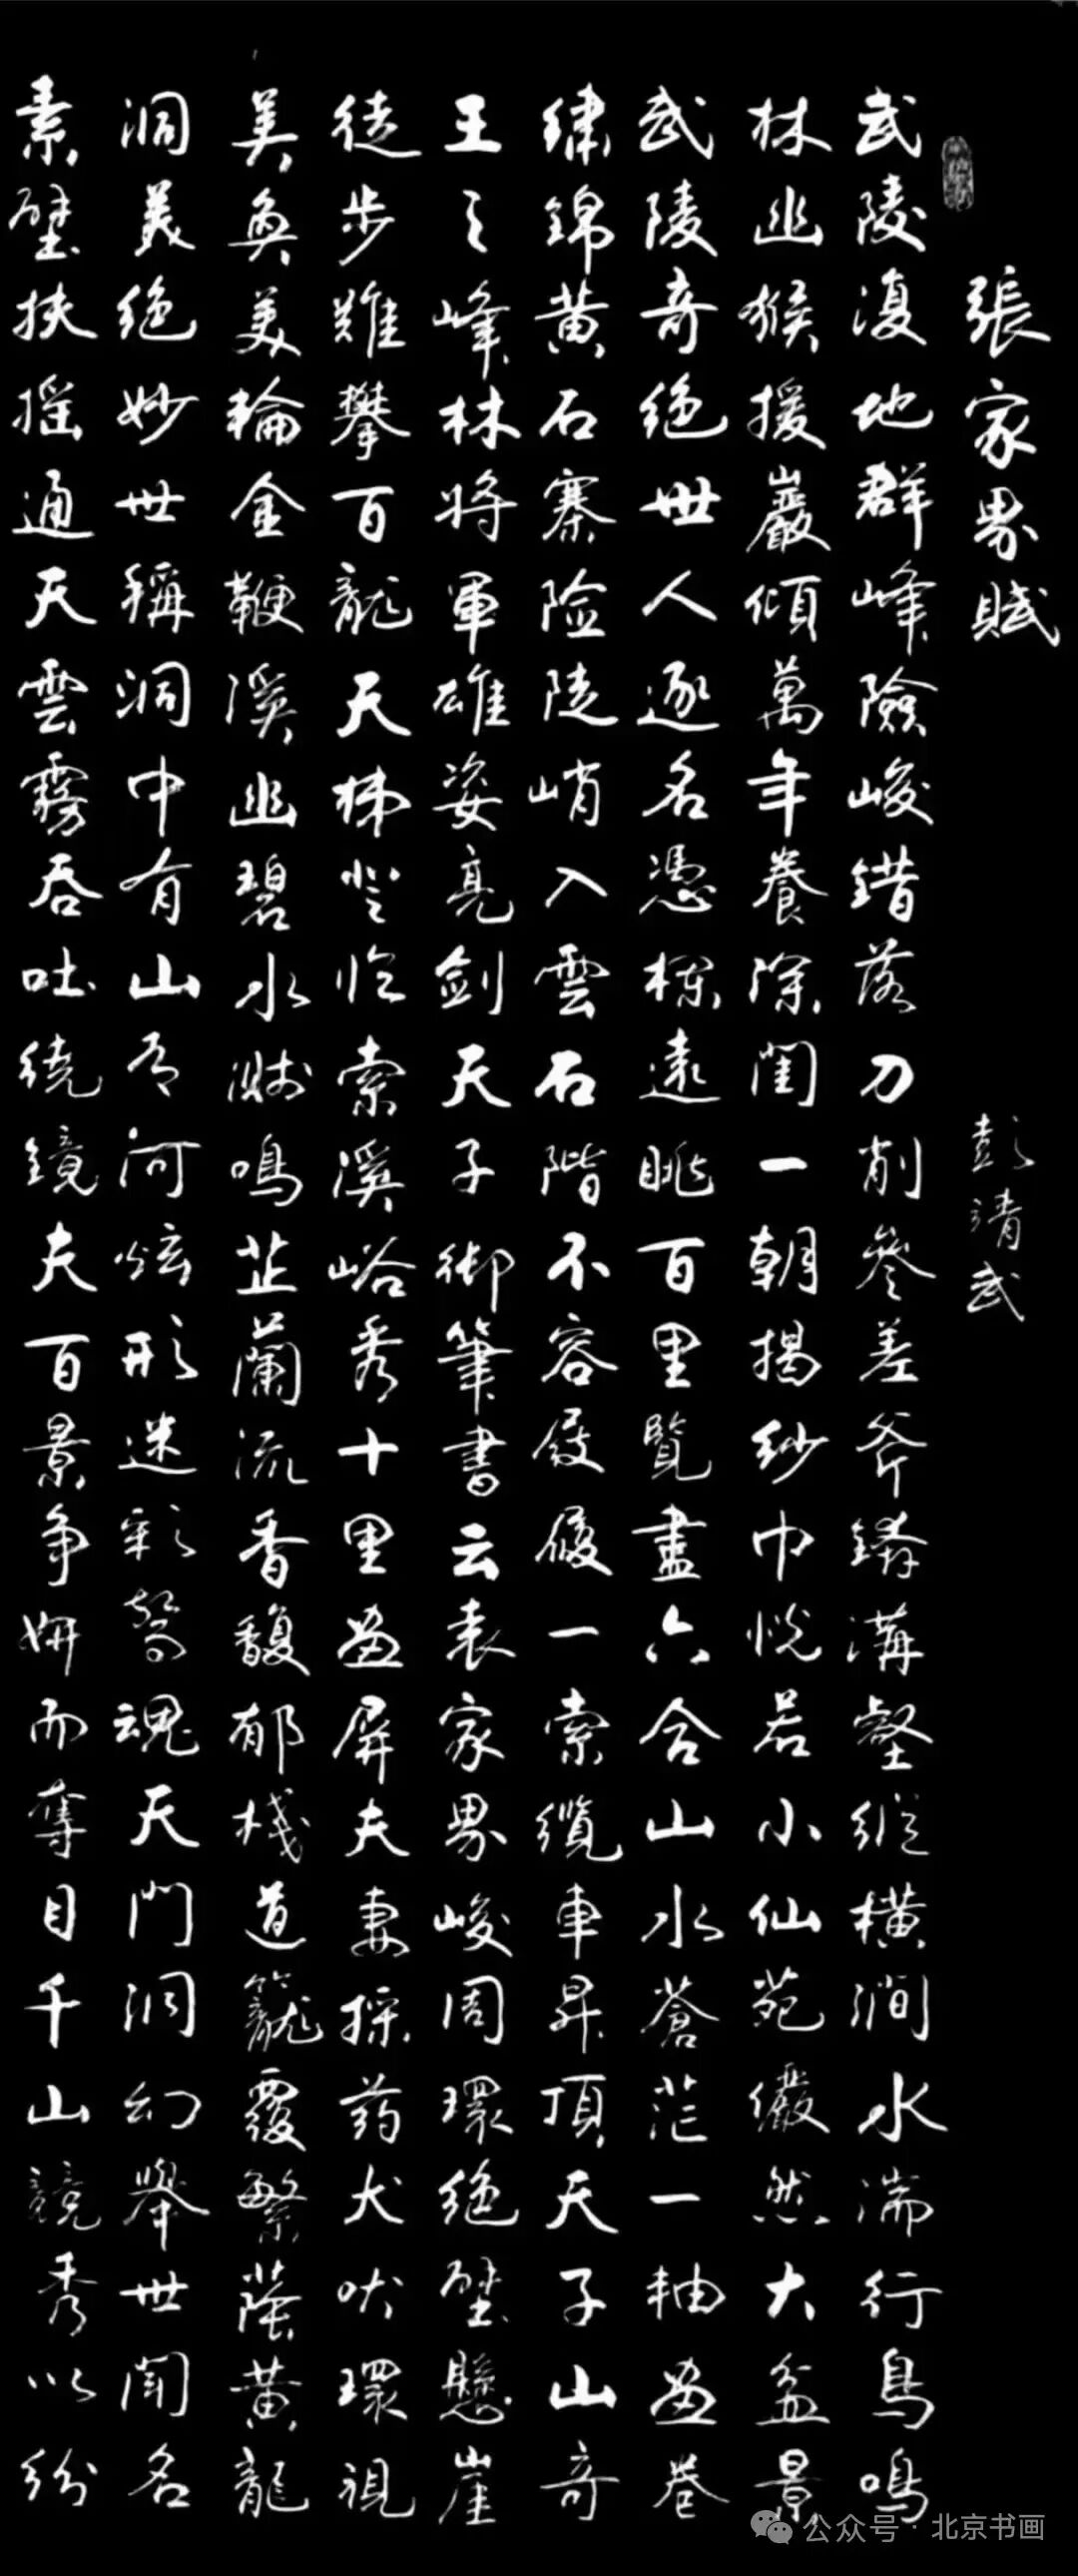 張家界賦
彭清武
武陵復地群峰險峻錯落刀削參差斧鏽溝壑縱橫澗水湍行鳥鳴
林幽猴援巖傾萬年養深閨一朝揭紗巾恍若小仙苑儼然大盆景
武陵奇绝世人逐名憑欄遠眺百里覽盡六合山水蒼茫一軸畫卷
繡錦黄石寨险陡峭入雲石階不容屐履一索纜車昇頂天子山奇
王之峰林将軍雄姿亮劍天子御筆書云表家界峻周環绝壁懸崖
徒步難攀百龍天梯登临索溪峪秀十里画屏夫妻採药犬吠環視
美奂美輪金鞭溪幽碧水溅鳴芷蘭流香馥郁栈道籠覆繁蔭黄龍
洞美绝妙世稱洞中有山有河炫形迷彩驚魂天門洞幻舉世聞名
素壁扶摇通天雲霧吞吐绕鏡夫百景争妍而奪目千山競秀以纷
公众号·北京书画